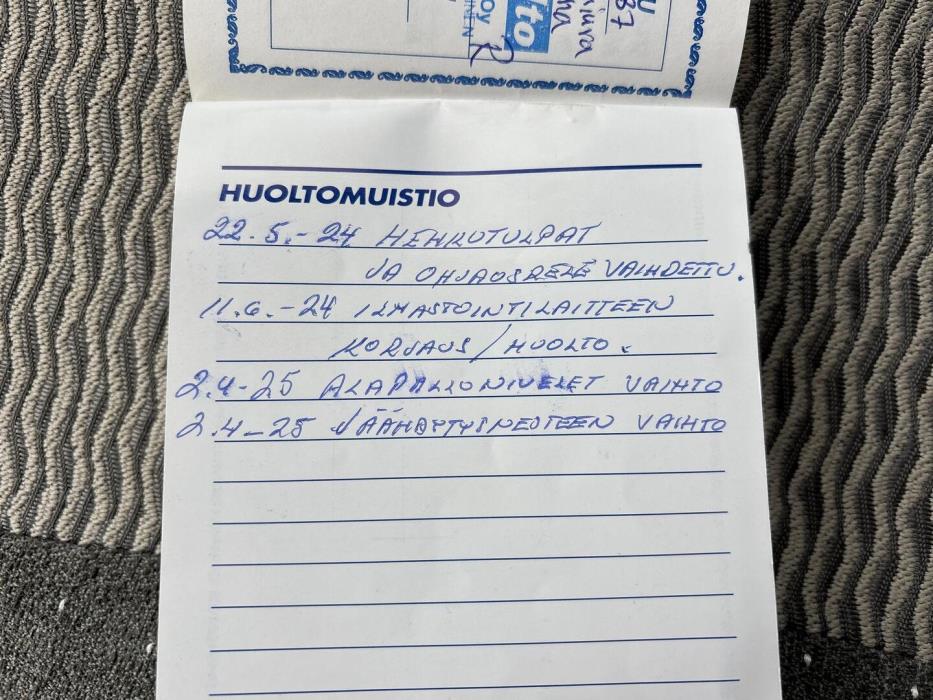 U
87
iura
ha
to
Oy
INEN
R
HUOLTOMUISTIO
22.5.-24 HEHKUTULPAT
JA OHJAUSRELE VAIHDETTU.
11.6.-24 ILMASTOINTILAITTEEN
KORJAUS/HUOLTO.
2.4-25 ALAPALLONIVELET VAIHTO
2.4-25 JÄÄHDYTYSNESTEEN VAIHTO